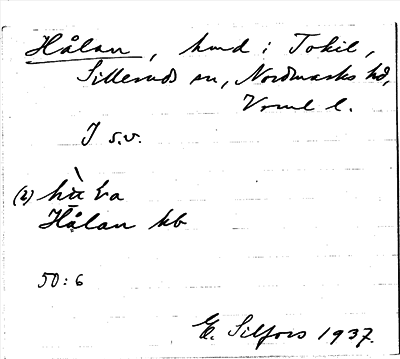 Hålan, hmd i Tokil,
Silleruds sn, Nordmarks hd,
Vrml l.
I s.v.
(2)
Hålan kb
50:6
E. Silfors 1937.